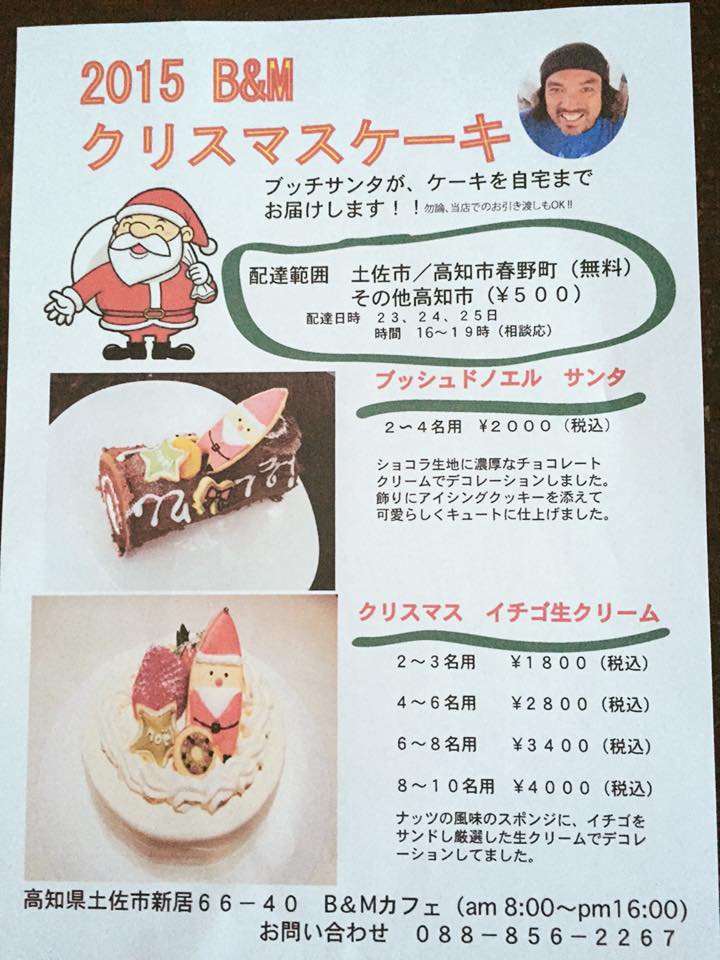 2015 B&M
クリスマスケーキ
ブッチサンタが、ケーキを自宅まで
お届けします！！勿論、当店でのお引き渡しもOK!!
配達範囲　土佐市／高知市春野町（無料）
その他高知市（¥５００）
配達日時　２３、２４、２５日
時間　16～19時（相談応）
ブッシュドノエル　サンタ
２～４名用　¥２０００（税込）
ショコラ生地に濃厚なチョコレート
クリームでデコレーションしました。
飾りにアイシングクッキーを添えて
可愛らしくキュートに仕上げました。
クリスマス　イチゴ生クリーム
２～３名用　¥１８００（税込）
４～６名用　¥２８００（税込）
６～８名用　¥３４００（税込）
８～１０名用　¥４０００（税込）
ナッツの風味のスポンジに、イチゴを
サンドし厳選した生クリームでデコレ
ーションしてました。
高知県土佐市新居６６－４０　B＆Mカフェ（am 8:00～pm16:00)
お問い合わせ　０８８－８５６－２２６７